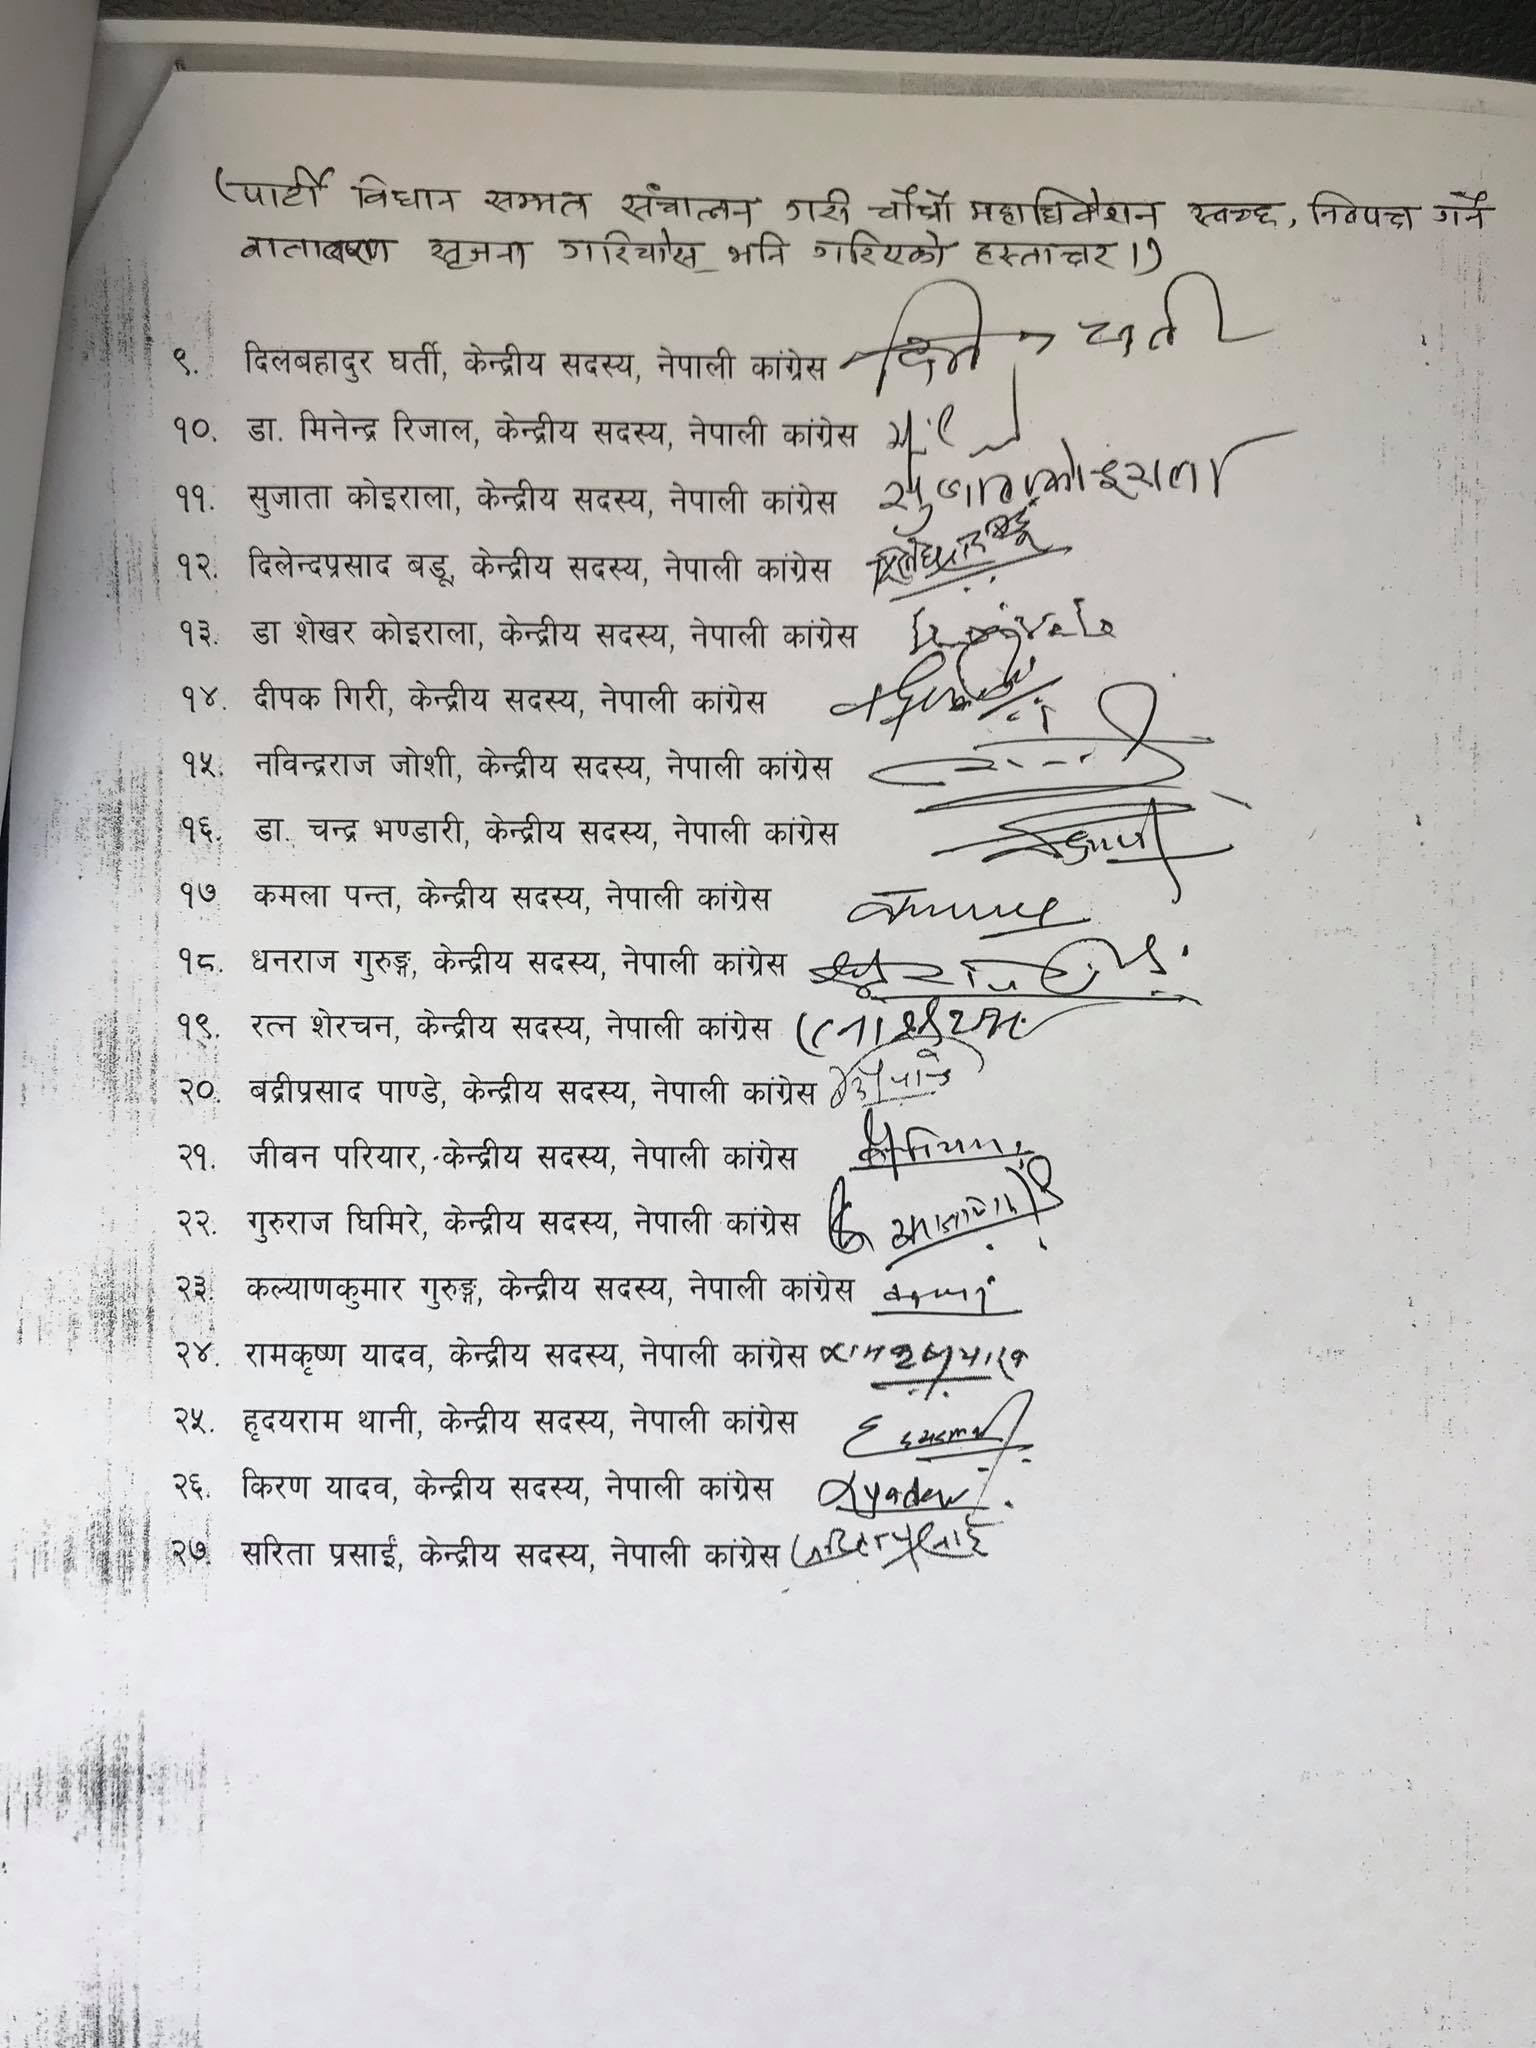 (पार्टी विधान सम्मत संचालन गरी चौधौं महाधिवेशन स्वच्छ, निष्पक्ष गर्ने
वातावरण सृजना गरियोस् भनि गरिएको हस्ताक्षर।)
९. दिलबहादुर घर्ती, केन्द्रीय सदस्य, नेपाली कांग्रेस
१०. डा. मिनेन्द्र रिजाल, केन्द्रीय सदस्य, नेपाली कांग्रेस
११. सुजाता कोइराला, केन्द्रीय सदस्य, नेपाली कांग्रेस सुजाता कोइराला
१२. दिलेन्दप्रसाद बडू, केन्द्रीय सदस्य, नेपाली कांग्रेस
१३. डा शेखर कोइराला, केन्द्रीय सदस्य, नेपाली कांग्रेस
१४. दीपक गिरी, केन्द्रीय सदस्य, नेपाली कांग्रेस
१५. नविन्द्रराज जोशी, केन्द्रीय सदस्य, नेपाली कांग्रेस
१६. डा. चन्द्र भण्डारी, केन्द्रीय सदस्य, नेपाली कांग्रेस
१७ कमला पन्त, केन्द्रीय सदस्य, नेपाली कांग्रेस
१८. धनराज गुरुङ्ग, केन्द्रीय सदस्य, नेपाली कांग्रेस
१९. रत्न शेरचन, केन्द्रीय सदस्य, नेपाली कांग्रेस
२०. बद्रीप्रसाद पाण्डे, केन्द्रीय सदस्य, नेपाली कांग्रेस
२१. जीवन परियार, केन्द्रीय सदस्य, नेपाली कांग्रेस
२२. गुरुराज घिमिरे, केन्द्रीय सदस्य, नेपाली कांग्रेस
२३. कल्याणकुमार गुरुङ्ग, केन्द्रीय सदस्य, नेपाली कांग्रेस
२४. रामकृष्ण यादव, केन्द्रीय सदस्य, नेपाली कांग्रेस रामकृष्ण यादव
२५. हृदयराम थानी, केन्द्रीय सदस्य, नेपाली कांग्रेस
२६. किरण यादव, केन्द्रीय सदस्य, नेपाली कांग्रेस Kyadav
२७. सरिता प्रसाईं, केन्द्रीय सदस्य, नेपाली कांग्रेस